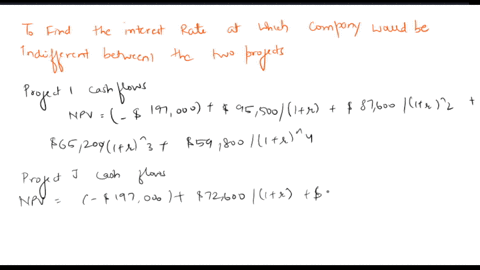 To Find the interest Rate at which company would be
Indifferent between the two projects
Project I cash flows
NPV = (-$ 197,000) + $ 95,500/(1+r) + $ 87,600 /(1+r)^2 +
$65,200/(1+r)^3 + $59,800/(1+r)^4
Project J cash flows
NPV = (-$197,000) + $72,600/(1+r) + $